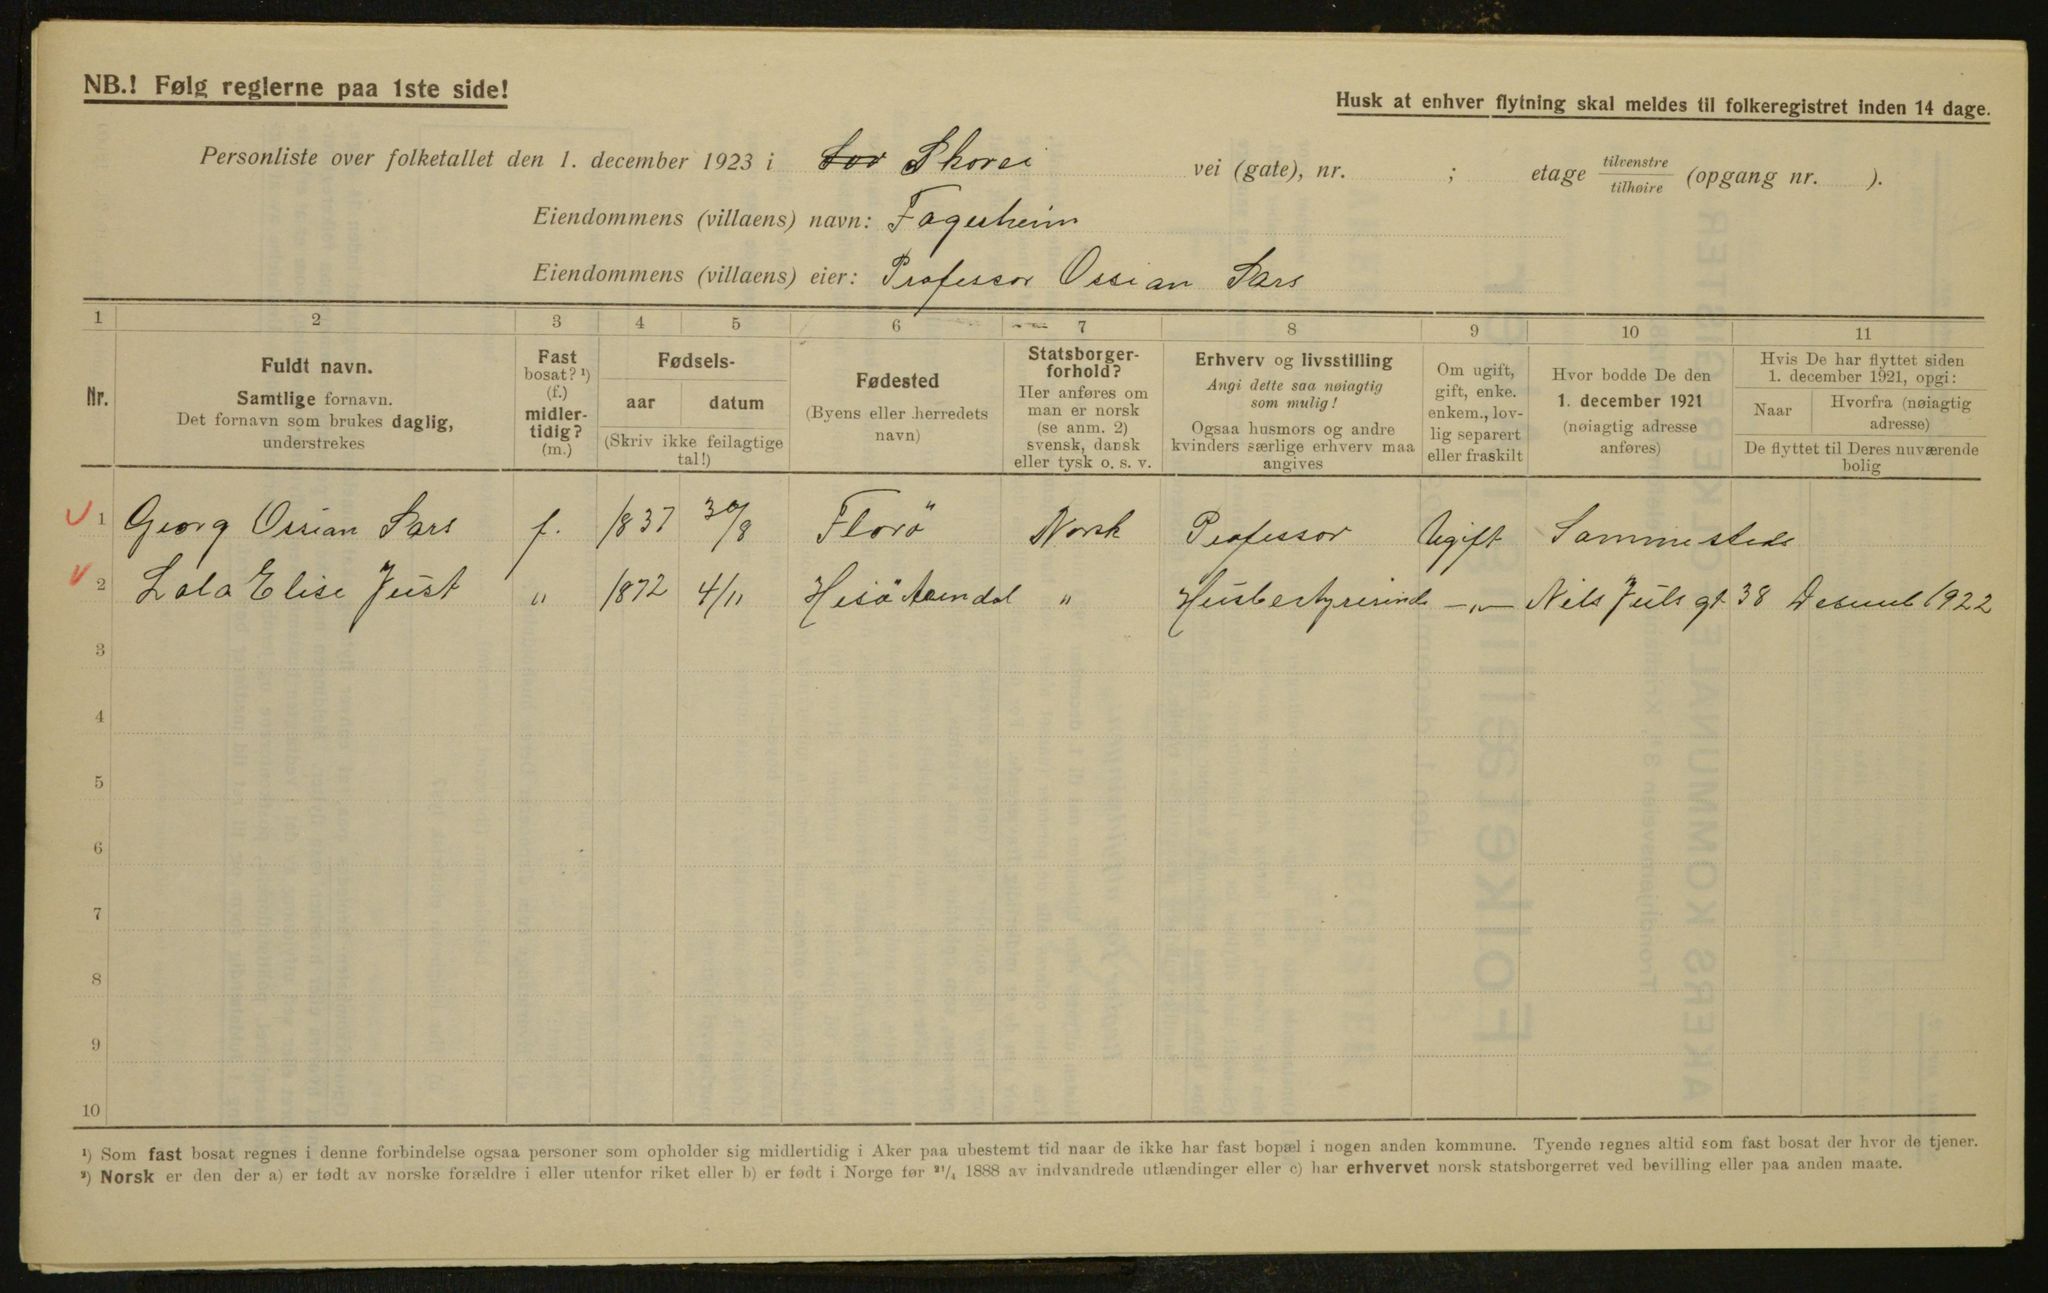 NB.! Følg reglerne paa 1ste side!
Husk at enhver flytning skal meldes til folkeregistret inden 14 dage.
Personliste over folketallet den 1. december 1923 i Skovei vei (gate), nr. ; etage tilvenstre/tilhøire (opgang nr. ).
Eiendommens (villaens) navn: Fagerheim
Eiendommens (villaens) eier: Professor Ossian Sars
1 2 3 4 5 6 7 8 9 10 11
Nr.
Fuldt navn.
Samtlige fornavn.
Det fornavn som brukes daglig,
understrekes
Fast
bosat? ¹)
(f.)
midler-
tidig?
(m.)
Fødsels-
aar datum
(Skriv ikke feilagtige
tal!)
Fødested
(Byens eller herredets
navn)
Statsborger-
forhold?
Her anføres om
man er norsk
(se anm. 2)
svensk, dansk
eller tysk o. s. v.
Erhverv og livsstilling
Angi dette saa nøiagtig
som mulig!
Ogsaa husmors og andre
kvinders særlige erhverv maa
angives
Om ugift,
gift, enke.
enkem., lov-
lig separert
eller fraskilt
Hvor bodde De den
1. december 1921
(nøiagtig adresse
anføres)
Hvis De har flyttet siden
1. december 1921, opgi:
Naar
Hvorfra (nøiagtig
adresse)
De flyttet til Deres nuværende
bolig
1 Georg Ossian Sars f. 1837 30/8 Florö Norsk Professor Ugift Sammesteds
2 Lala Elise Just " 1872 4/11 Hisö Arendal " Husbestyrerinde -"- Nils Juls gt 38 1922
3
4
5
6
7
8
9
10
¹) Som fast bosat regnes i denne forbindelse ogsaa personer som opholder sig midlertidig i Aker paa ubestemt tid naar de ikke har fast bopæl i nogen anden kommune. Tyende regnes altid som fast bosat der hvor de tjener.
²) Norsk er den der a) er født av norske forældre i eller utenfor riket eller b) er født i Norge før ²¹/₄ 1888 av indvandrede utlændinger eller c) har erhvervet norsk statsborgerret ved bevilling eller paa anden maate.